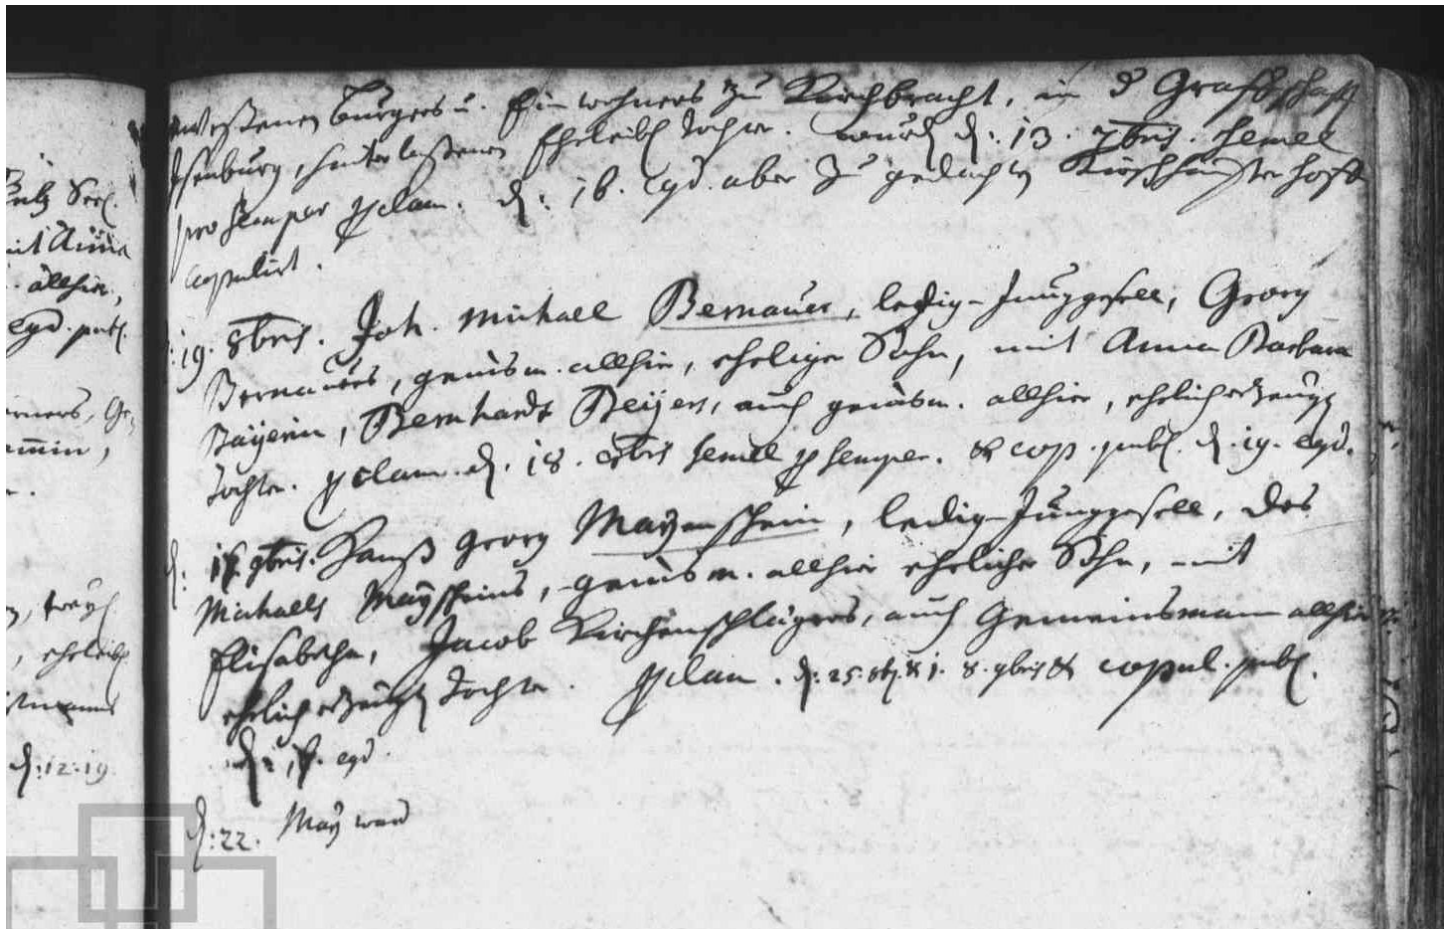 Sell.
mit Anna
allhier,
egd. publ.
eheleibl.
d: 12. 19.
wesenen Burgers u. Einwohners zu Kirchbracht, in d Graffschafft
Isenburg, hinterlaßenen Eheleibl Tochter. wurd d: 13. 7bris. semel
pro semper pclam. d: 16. egd. aber zu gedachten
copulirt.
19. 8bris. Joh. Michael Bernauer, ledig-Junggesell, Georg
Bernauers, gemeinsm. allhier, ehelicher Sohn, mit Anna Barbara
Bayerin, Bernhardt Beijers, auch gemeinsm. allhier, ehelich erzeugte
Tochter. pclam. d. 18. 8bris semel p semper. & cop. publ. d. 19. egd.
d: 9bris. Hanß Georg Mayenschein, ledig-Junggesell, des
Michaells Mayscheins, gemeinsm. allhier ehelicher Sohn, mit
Elisabetha, Jacob Kirchenschlägers, auch Gemeinsmann allhier
ehelich erzeugte Tochter. pclam. d: 25. 8br. & 1. 8. 9bris & copul. publ.
d: egd.
d: 22. May ward